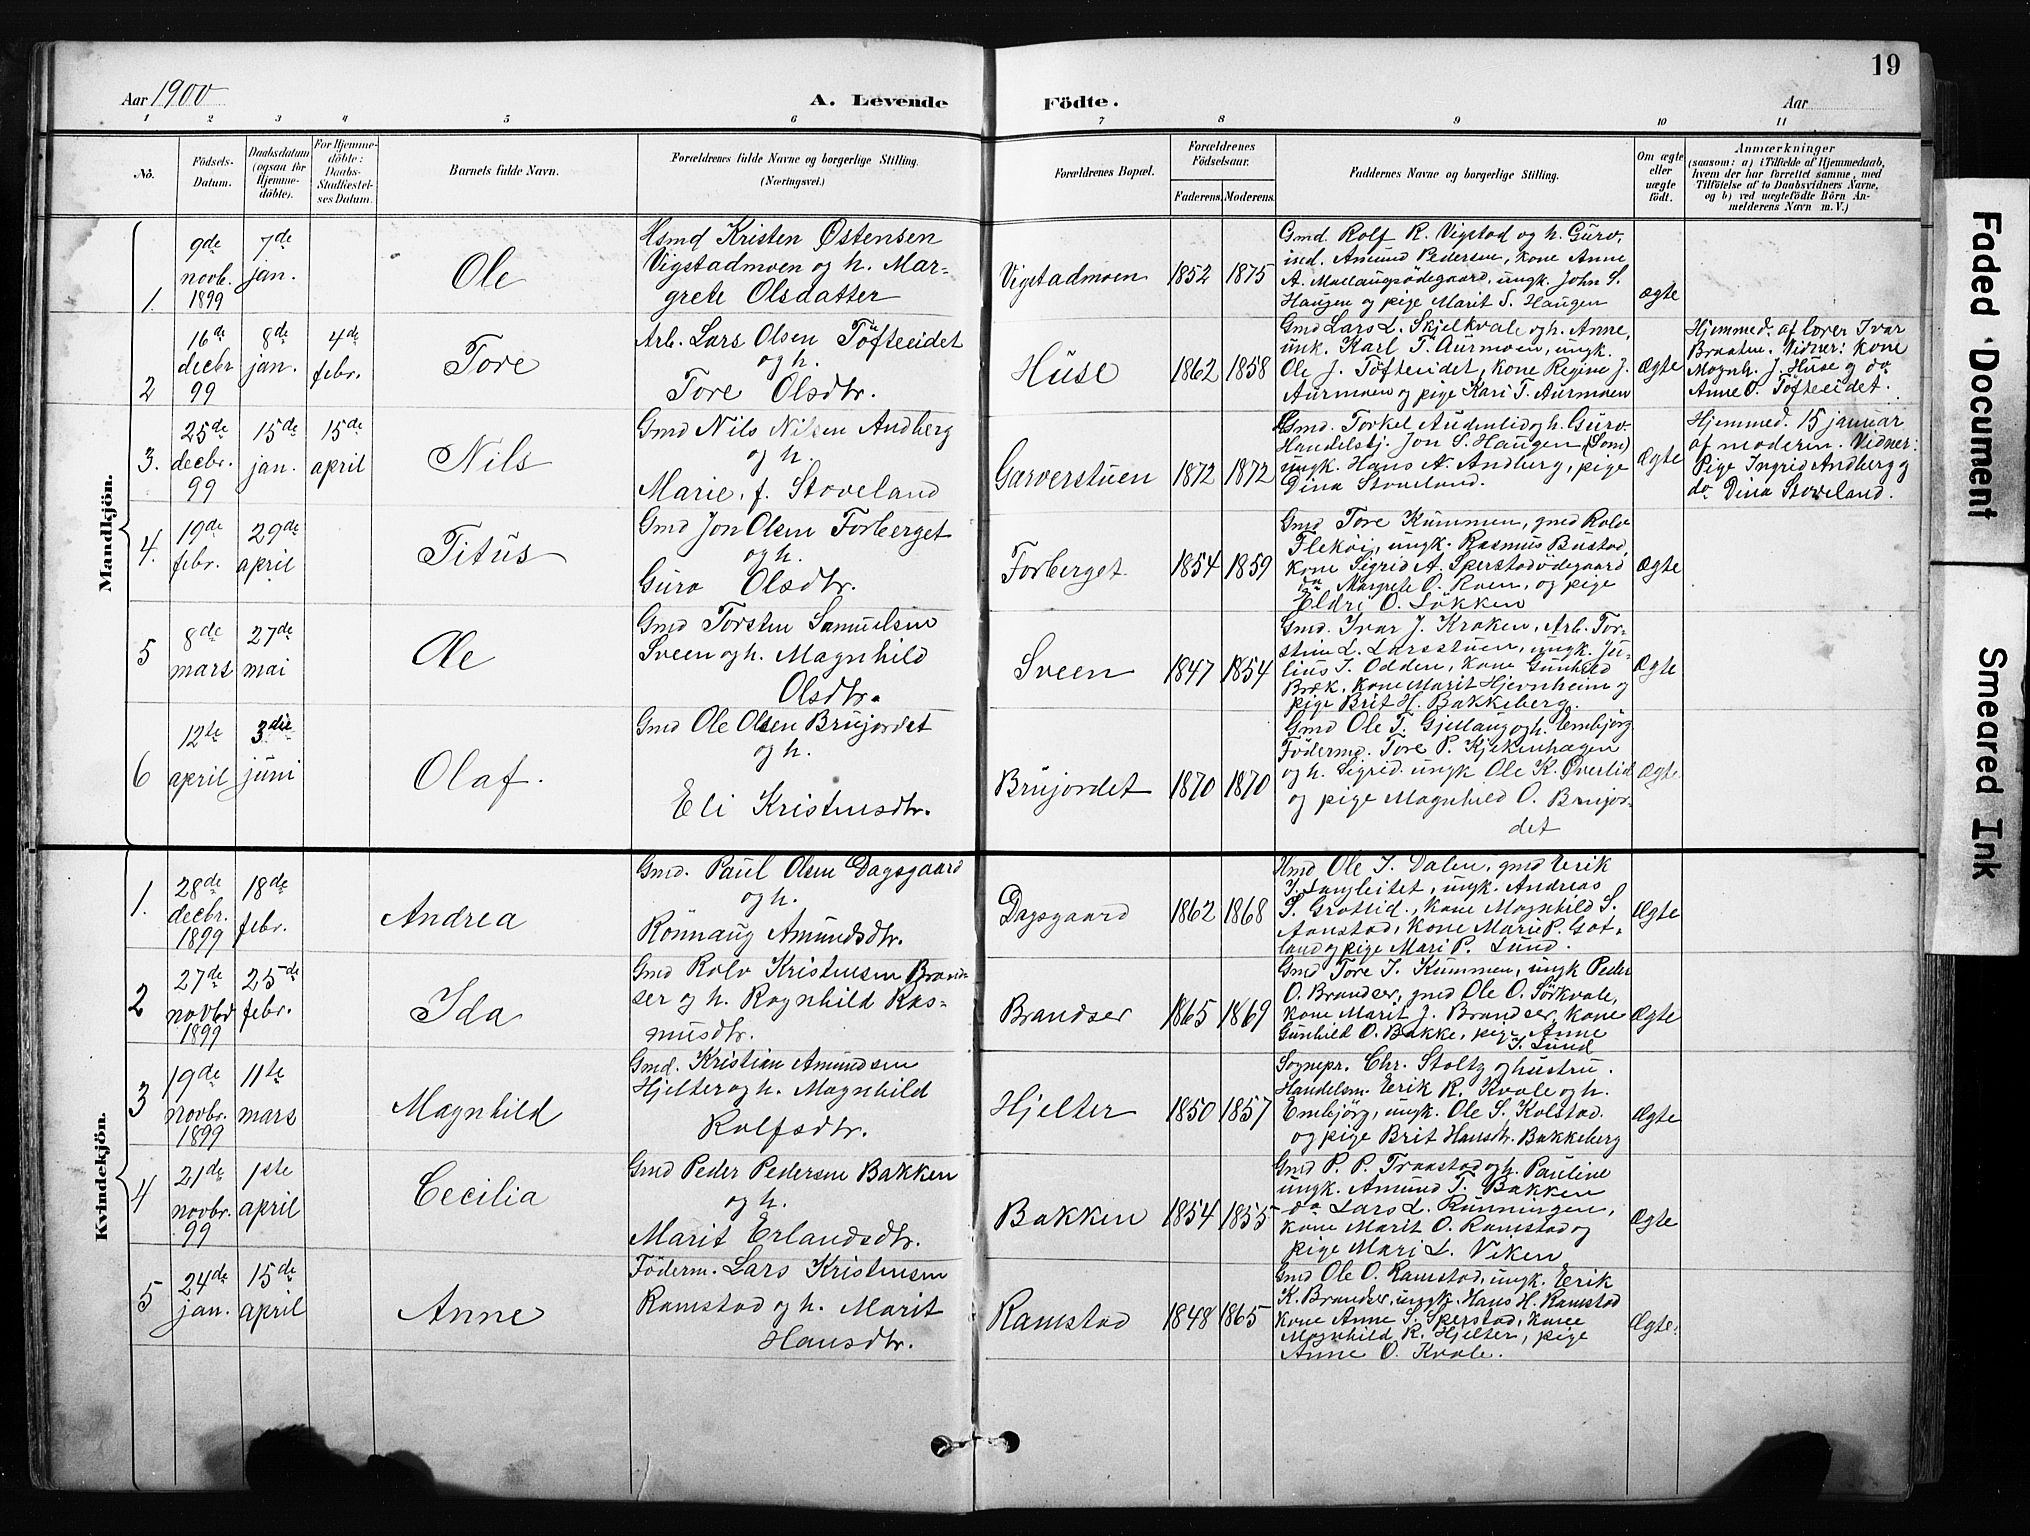 19
Aar 1900
A. Levende
Födte.
Aar
1 2 3 4 5 6 7 8 9 10 11
No.
Födsels-
Datum.
Daabsdatum
(ogsaa for
Hjemme-
döbte).
For Hjemme-
döbte:
Daabs-
Stadfæstel-
ses Datum.
Barnets fulde Navn.
Forældrenes fulde Navne og borgerlige Stilling.
(Næringsvei.)
Forældrenes Bopæl.
Forældrenes
Födselsaar.
Faderens. Moderens.
Faddernes Navne og borgerlige Stilling.
Om ægte
eller
uægte
født.
Anmærkninger
(saasom: a) i Tilfælde af Hjemmedaab,
hvem der har forrettet samme, med
Tilföielse af to Daabsvidners Navne,
og b) ved uægtefödte Börn An-
melderens Navn m. V.)
Mandkjön.
1.
9de
novb.
1899
7de
jan.
Ole
Hsmd Kristen Østensen
Vigstadmoen og h. Mar-
grete Olsdatter
Vigstadmoen
1852
1875
Gmd. Rolf R. Vigstad og h. Guro,
ind. Amund Pedersen, kone Anne
A. Mallaugsødegaard, ungk. John S.
Haugen og pige Marit S. Haugen
ægte
2
16de
decbr
99
8de
jan.
4de
febr.
Tore
Arb. Lars Olsen Tøfteeidet
og h.
Tore Olsdtr.
Huse
1862
1858
Gmd Lars L. Skjelkvale og h. Anne,
unk. Karl T. Aurmoen, ungk.
Ole J. Tøfteeidet, kone Regine J.
Aurmoen og pige Kari T. Aurmoen
Ægte
Hjemmed. af lærer Ivar
Braaten. Vidner: kone
Magnh. J. Huse og do
Anne O. Tøfteeidet.
3.
25de
decbr.
99
15de
jan.
15de
april
Nils
Gmd Nils Nilsen Andberg
og h.
Marie, f. Stoveland
Garverstuen
1872
1872
Gmd. Torkel Audenlid og h. Guro.
Handelsbj. Jon S. Haugen (Lom)
ungk. Hans N. Andberg, pige
Dina Stoveland.
Ægte
Hjemmed. 15 januar
af moderen. Vidner:
Pige Ingrid Andberg og
do Dina Stoveland.
4.
19de
febr.
29de
april
Titus
Gmd Jon Olsen Forberget
og h.
Guro Olsdtr.
Forberget
1854
1859
Gmd. Tore Kummen, gmd Rolv
Flekøi, ungk. Rasmus Bustad,
kone Sigrid A. Sperstadødegaard
do Margrete O. Roen, og pige
Eldri O. Løkken
Ægte
5
8de
mars
27de
mai
Ole
Gmd Torsten Samuelsen
Sveen og h. Magnhild
Olsdtr.
Sveen
1847
1854
Gmd. Ivar J. Kroken, Arb. Tor-
stein L. Larsstuen, ungk. Ju-
lius J. Odden, kone Gunhild
Bræk, kone Marit Hjernheim og
pige Brit H. Bakkeberg.
Ægte
6
12te
april
3die
juni
Olaf.
Gmd Ole Olsen Brujordet
og h.
Eli Kristensdtr.
Brujordet
1870
1870
Gmd Ole T. Gjellaug og h. Embjørg.
Födermd. Tore P. Kjekenhagen
og h. Sigrid. ungk Ole K. Øverlid
og pige Magnhild O. Brujor-
det
Ægte
Kvindekjön.
1.
28de
decbr.
1899
18de
febr.
Andrea
Gmd. Paul Olsen Dagsgaard
og h.
Rønnaug Amundsdtr.
Dagsgaard
1862
1868
Hmd Ole J. Dalen, gmd Erik
J. Langleitet, ungk. Andreas
S. Grotlid, kone Magnhild S.
Aanstad, kone Marie P. Got-
land og pige Mari P. Lund.
Ægte
2
27de
novbr
1899
25de
febr.
Ida
Gmd Rolv Kristensen Brand-
ser og h. Ragnhild Ras-
musdtr.
Brandser
1865
1869
Gmd Tore J. Kummen, ungk Peder
O. Brandser, gmd Ole O. Sørkvale,
kone Marit J. Brandser, kone
Gunhild O. Bakke, pige Anne
J. Lund
Ægte
3
19de
novbr.
1899
11te
mars
Magnhild
Gmd. Kristian Amundsen
Hjelter og h. Magnhild
Rolfsdtr.
Hjelter
1850
1857
Sognepr. Chr. Stoltz og hustru.
Handelsm. Erik R. Kvale og h.
Embjörg, ungk. Ole S. Kolstad.
og pige Brit Hansdtr. Bakkeberg
Ægte
4
21de
novbr.
99
1ste
april
Cecilia
Gmd Peder Pedersen Bakken
og h.
Marit Erlandsdtr.
Bakken
1854
1855
Gmd P. P. Traastad og h. Pauline
ungk. Amund T. Bakken
do Lars L. Rünningen,
kone Marit O. Ramstad og
pige Mari L. Viken
Ægte
5
24de
jan.
15de
april
Anne
Föderm. Lars Kristensen
Ramstad og h. Marit
Hansdtr.
Ramstad
1848
1865
Gmd Ole O. Ramstad, ungk. Erik
K. Brandser, ungk. Hans H. Ramstad
kone Anne S. Sperstad, kone
Magnhild R. Hjelter, pige
Anne O. Kvale.
Ægte.
Faded Document
Smeared Ink